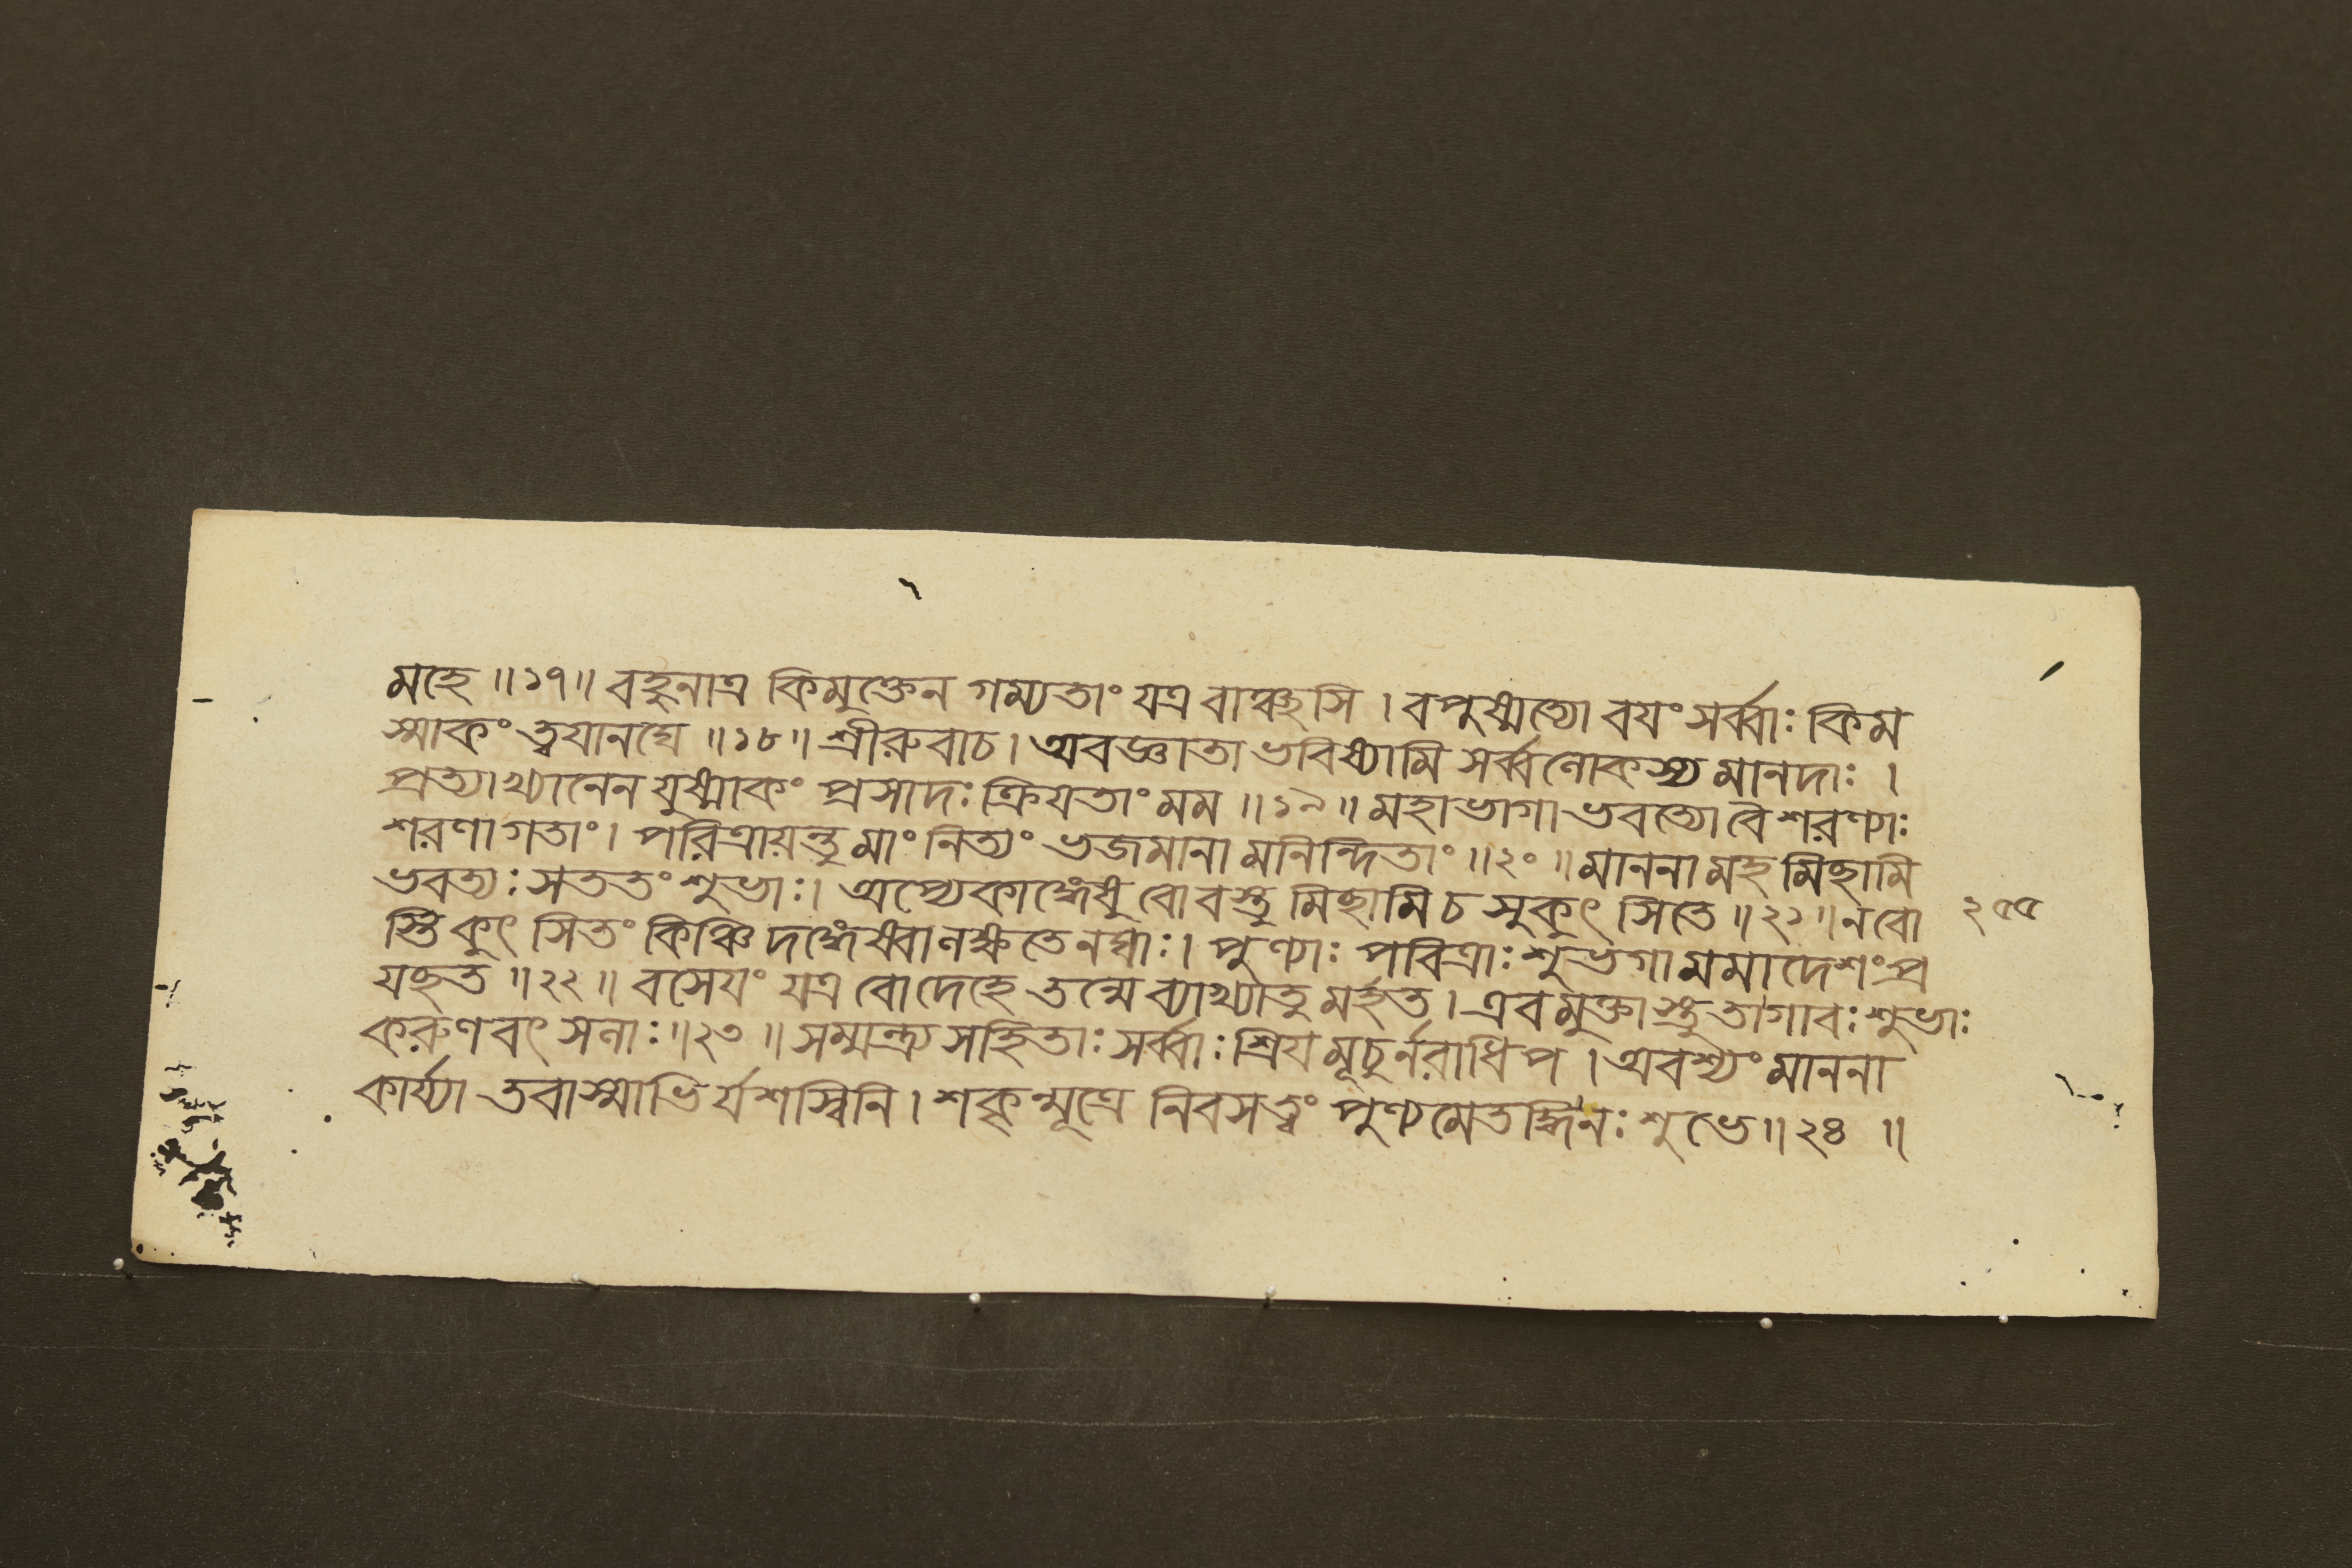 মহে ॥১৭॥ বহুনাত্র কিমুক্তেন গম্যতাং যত্র বাঞ্ছসি । বপুষ্মত্যো বযং সর্ব্বাঃ কিম
স্মাকং ত্বযানঘে ॥১৮॥ শ্রীরুবাচ । অবজ্ঞাতা ভবিষ্যামি সর্ব্বলোকস্য মানদাঃ ।
প্রত্যাখ্যানেন যুষ্মাকং প্রসাদঃ ক্রিযতাং মম ॥১৯॥ মহাভাগা ভবত্যো বৈ শরণ্যাঃ
শরণাগতাং । পরিত্রায়ন্তু মাং নিত্যং ভজমানামনিন্দিতাং ॥২০॥ মাননামহমিছামি
ভবত্যঃ সততং শুভাঃ । অপ্যেকাঙ্গেষু বো বস্তুমিছামি চ সুকুৎসিতে ॥২১॥ ন বো
স্তি কুৎসিতং কিঞ্চিদঙ্গেষ্বালক্ষতেনঘাঃ । পুণ্যাঃ পবিত্রাঃ শুভগা মমাদেশং প্র
যছত ॥২২॥ বসেযং যত্র বো দেহে তন্মে ব্যাখ্যাতুমর্হত । এবমুক্তাস্তু তা গাবঃ শুভাঃ
করুণবৎসলাঃ ॥২৩॥ সম্মন্ত্র্য সহিতাঃ সর্ব্বাঃ শ্রিযমূচুর্নরাধিপ । অবশ্যং মাননা
কার্য্যা তবাস্মাভির্যশস্বিনি । শকৃন্মূত্রে নিবসত্বং পুণ্যমেতদ্ধি নঃ শুভে ॥২৪॥
২৫৫